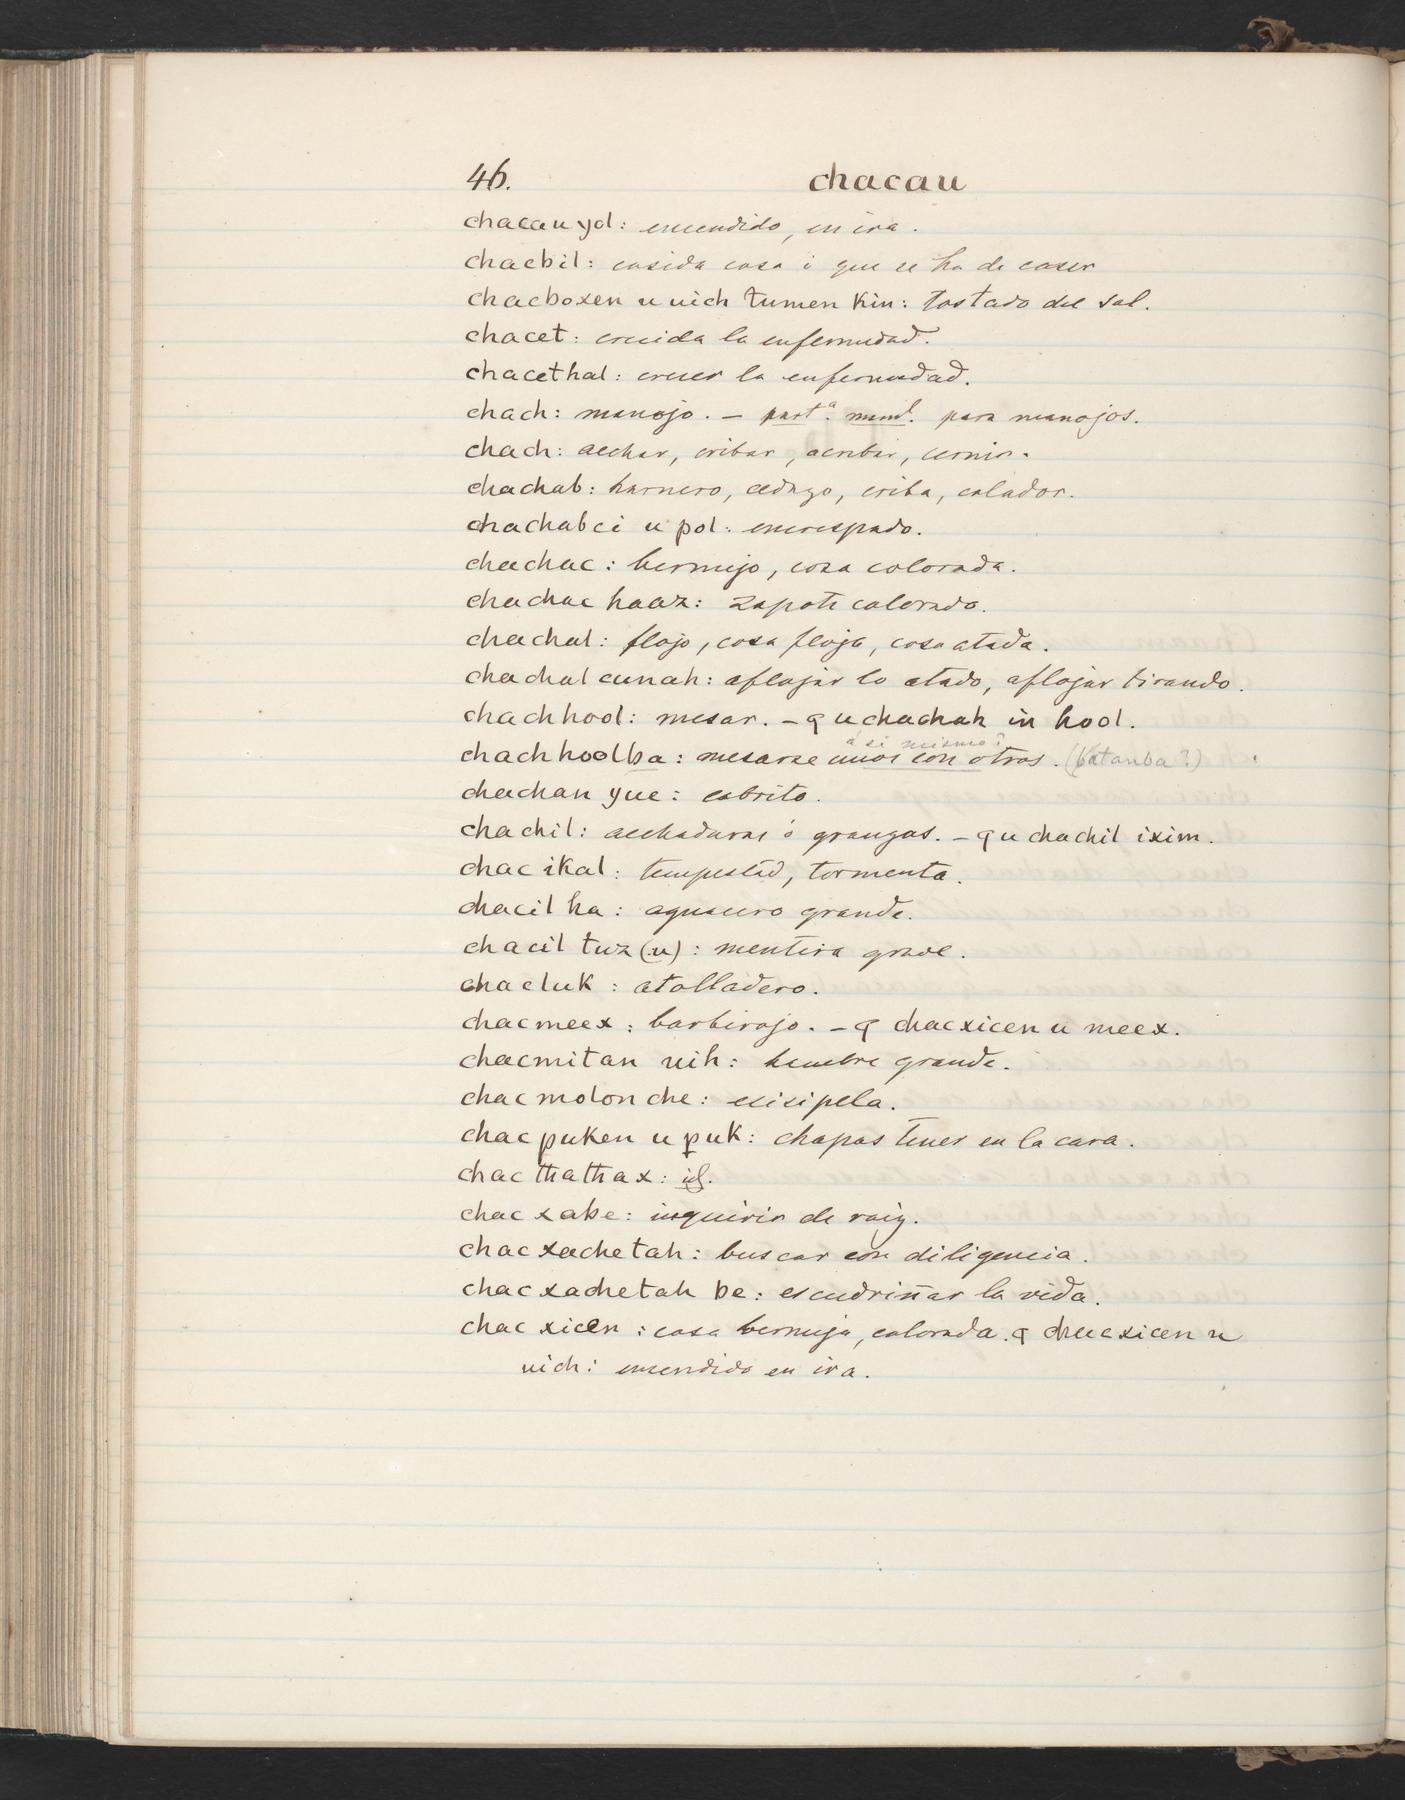 46. chacau
chacau yol: encendido, en ira.
chacbil: cosida cosa i que se ha de coser
chacboxen u uich tumen kin: tostado del sol.
chacet: crecida la enfermedad.
chacethal: crecer la enfermedad.
chach: manojo. — partª. numl. para manojos.
chach: aechar, cribar, acribar, cernir.
chachab: harnero, cedazo, criba, colador.
chachabci u pol: encrespado.
chachac: bermejo, cosa colorada.
chachac haaz: zapote colorado.
chachal: flojo, cosa floja, cosa atada.
chachalcunah: aflojar lo atado, aflojar tirando.
chachhool: mesar. — q u chachah in hool.
á si mismo?
chachhoolba: mesarse unos con otros. (batanba?)
chachan yuc: cabrito.
chachil: aechaduras ó granzas. — q u chachil ixim.
chac ikal: tempestad, tormenta.
chacil ha: aguacero grande.
chacil tuz (u): mentira grave.
chacluk: atolladero.
chacmeex: barbirojo. — q chacxicen u meex.
chacmitan uih: hambre grande.
chacmolonche: erisipela.
chacpuken u puk: chapas tener en la cara.
chac thathax: id.
chac xabe: inquirir de raiz.
chac xachetah: buscar con diligencia.
chac xachetah be: escudriñar la vida.
chac xicen: cosa bermeja, colorada. q chacxicen u
uich: encendido en ira.